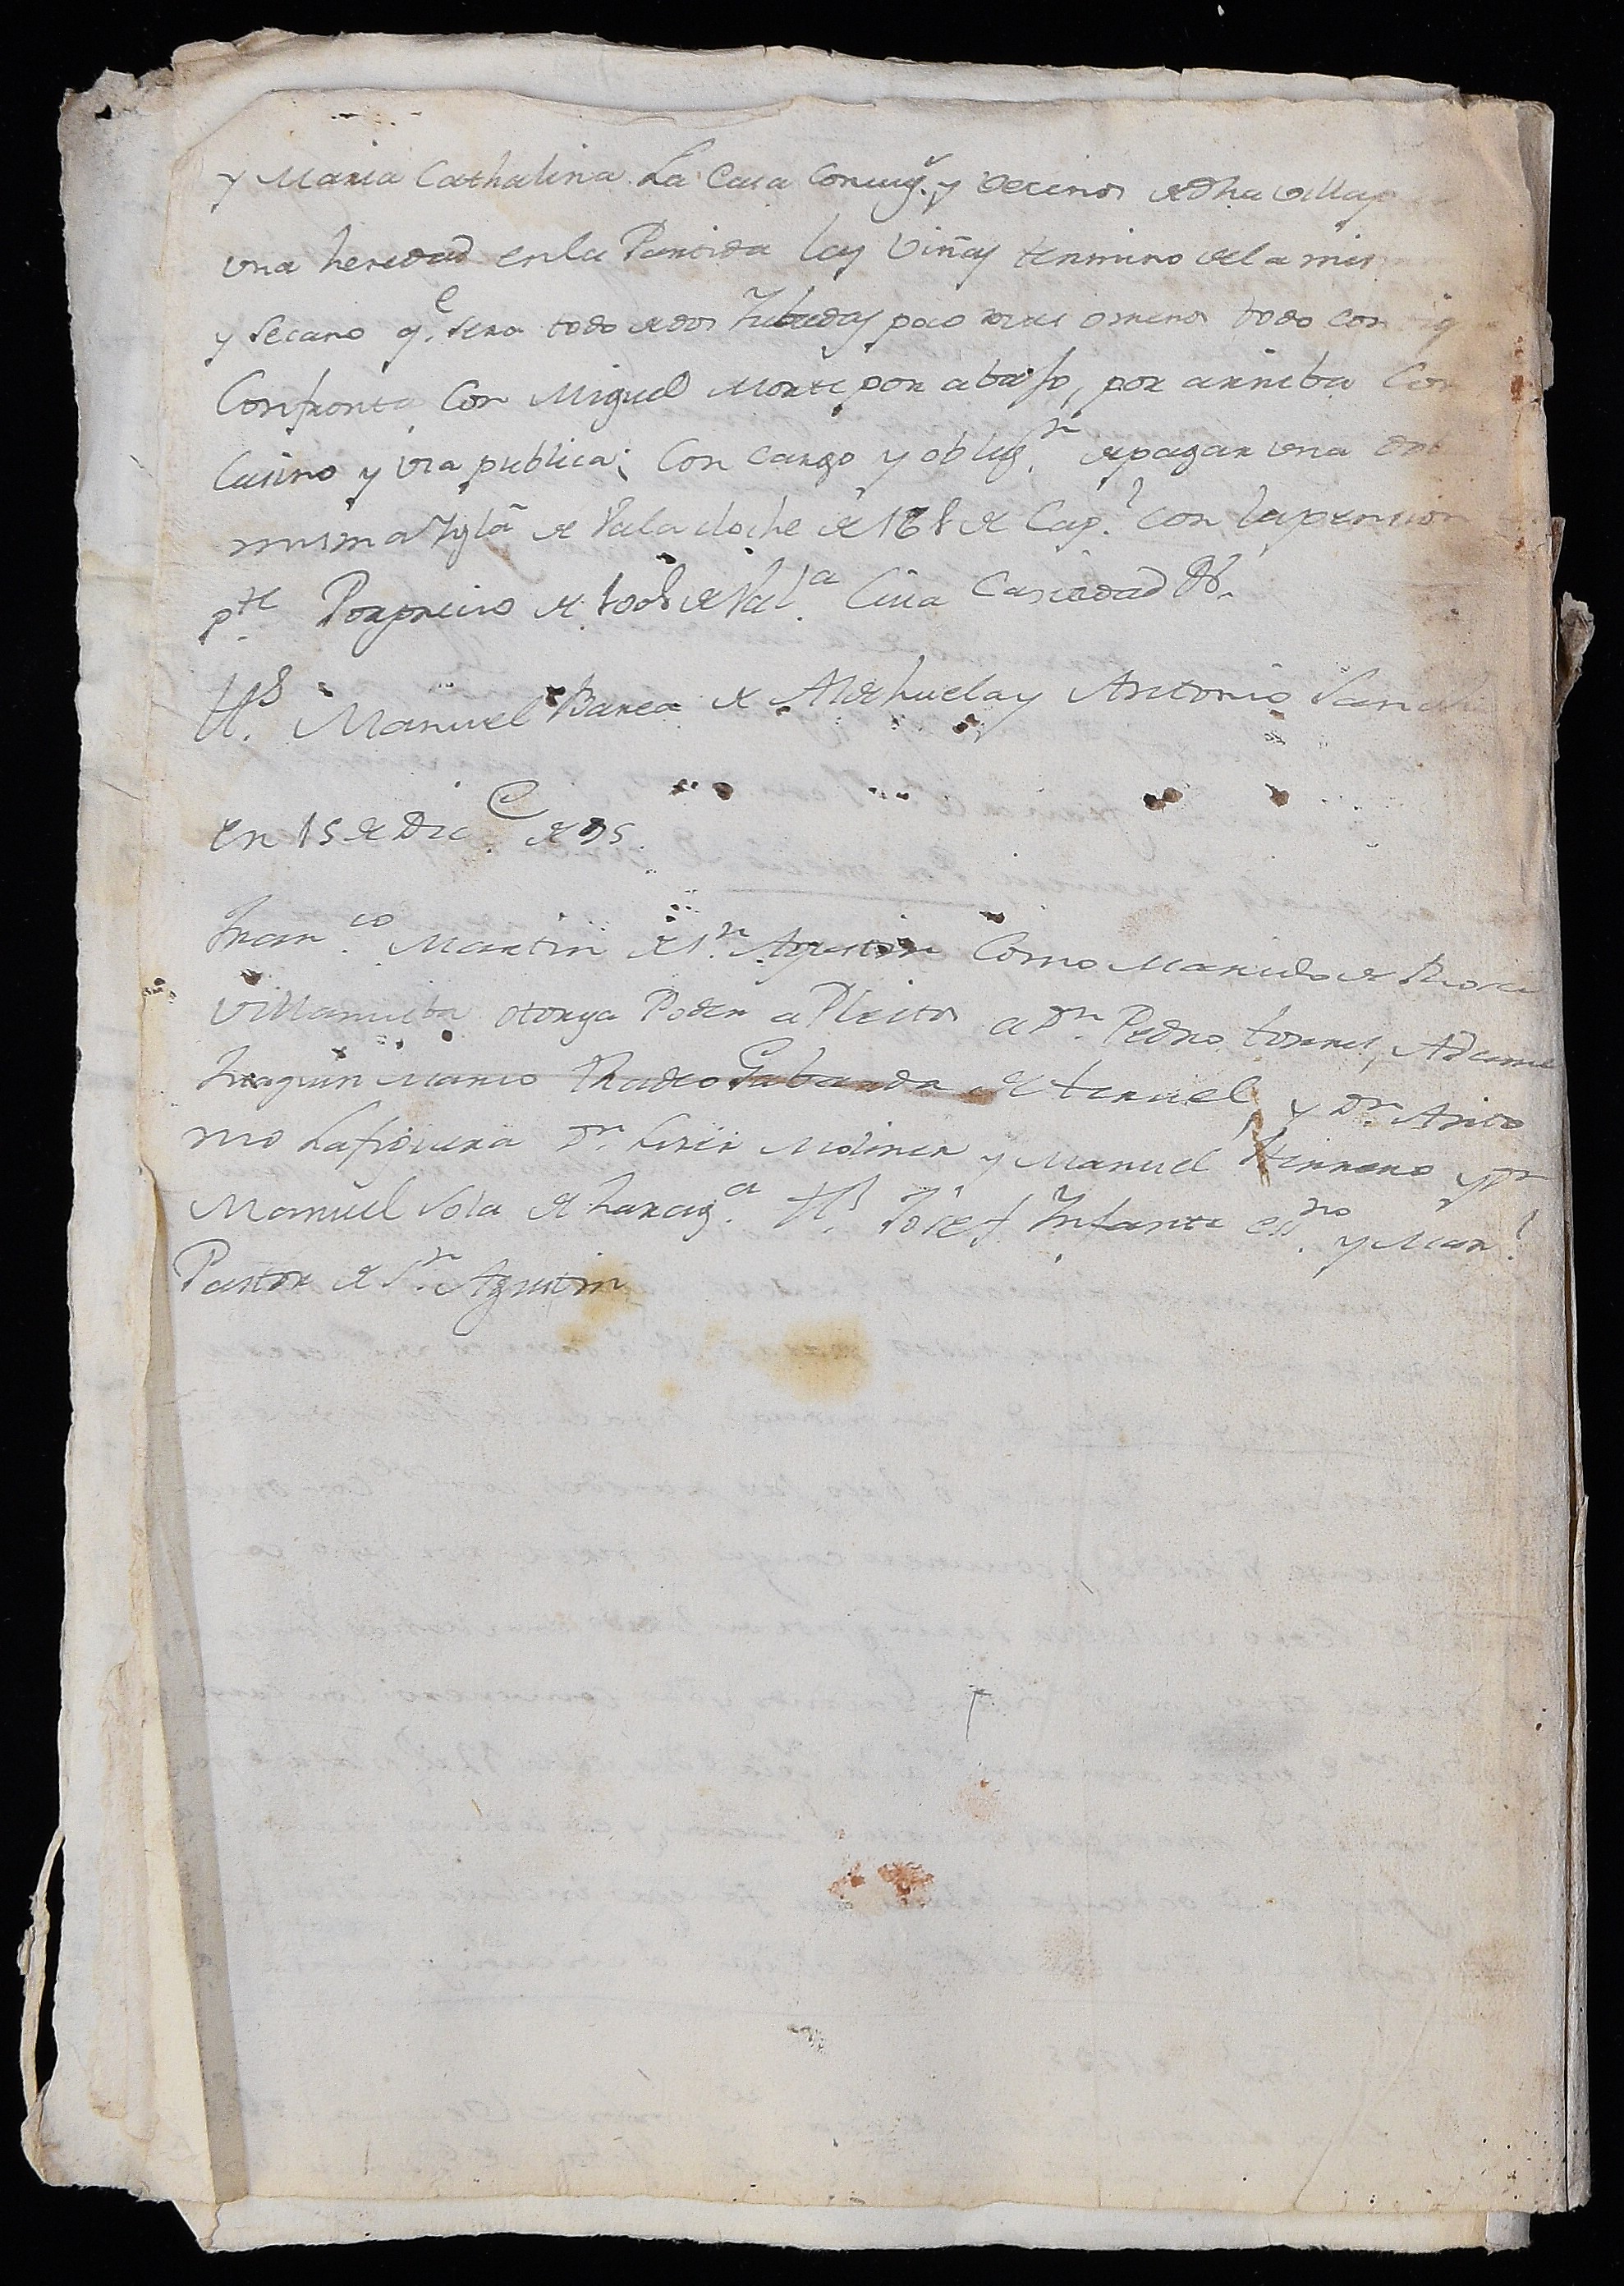 y Maria Cathalina La Casa Conjug.s y vecinos de dha villa
una heredad en la Partida las Viñas termino de la mis
y secano q.e sera todo de dos Jubadas poco mas o menos todo contig
Confronta Con Miguel Monte por abajo, por arriba Con
Casino y via publica; Con cargo y oblig.n de pagar una
misma Iglā de Valacloche de 16 ł de Cap.l con la pension
p.te Por precio de 100 ł de Val.a Cuia Cantidad &.
tt.s Manuel Barea de Aldehuela y Antonio Sanch
en 15 de Dic.e de 95
Fran.co Martin de S.n Agustin Como Marido de Rosa
Villanueba otorga Poder a Pleitos a D.n Pedro torres, Adame
Juaquin Marco Thadeo Gabarda de teruel, y D.n Anto
nio Lafiguera D.n Lirer Moliner y Manuel Herrero y D.n
Manuel Sola de Zarag.a tt.s Josef Infante ess.no y Man.l
Pastor de S.n Agustin